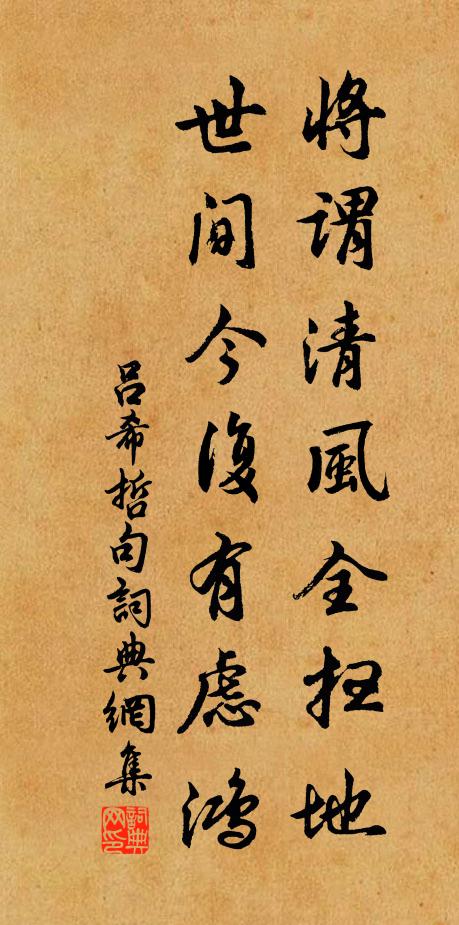 將謂清風全扫地
世間今復有慮鴻
吕希哲句詞典網集
詞典网印